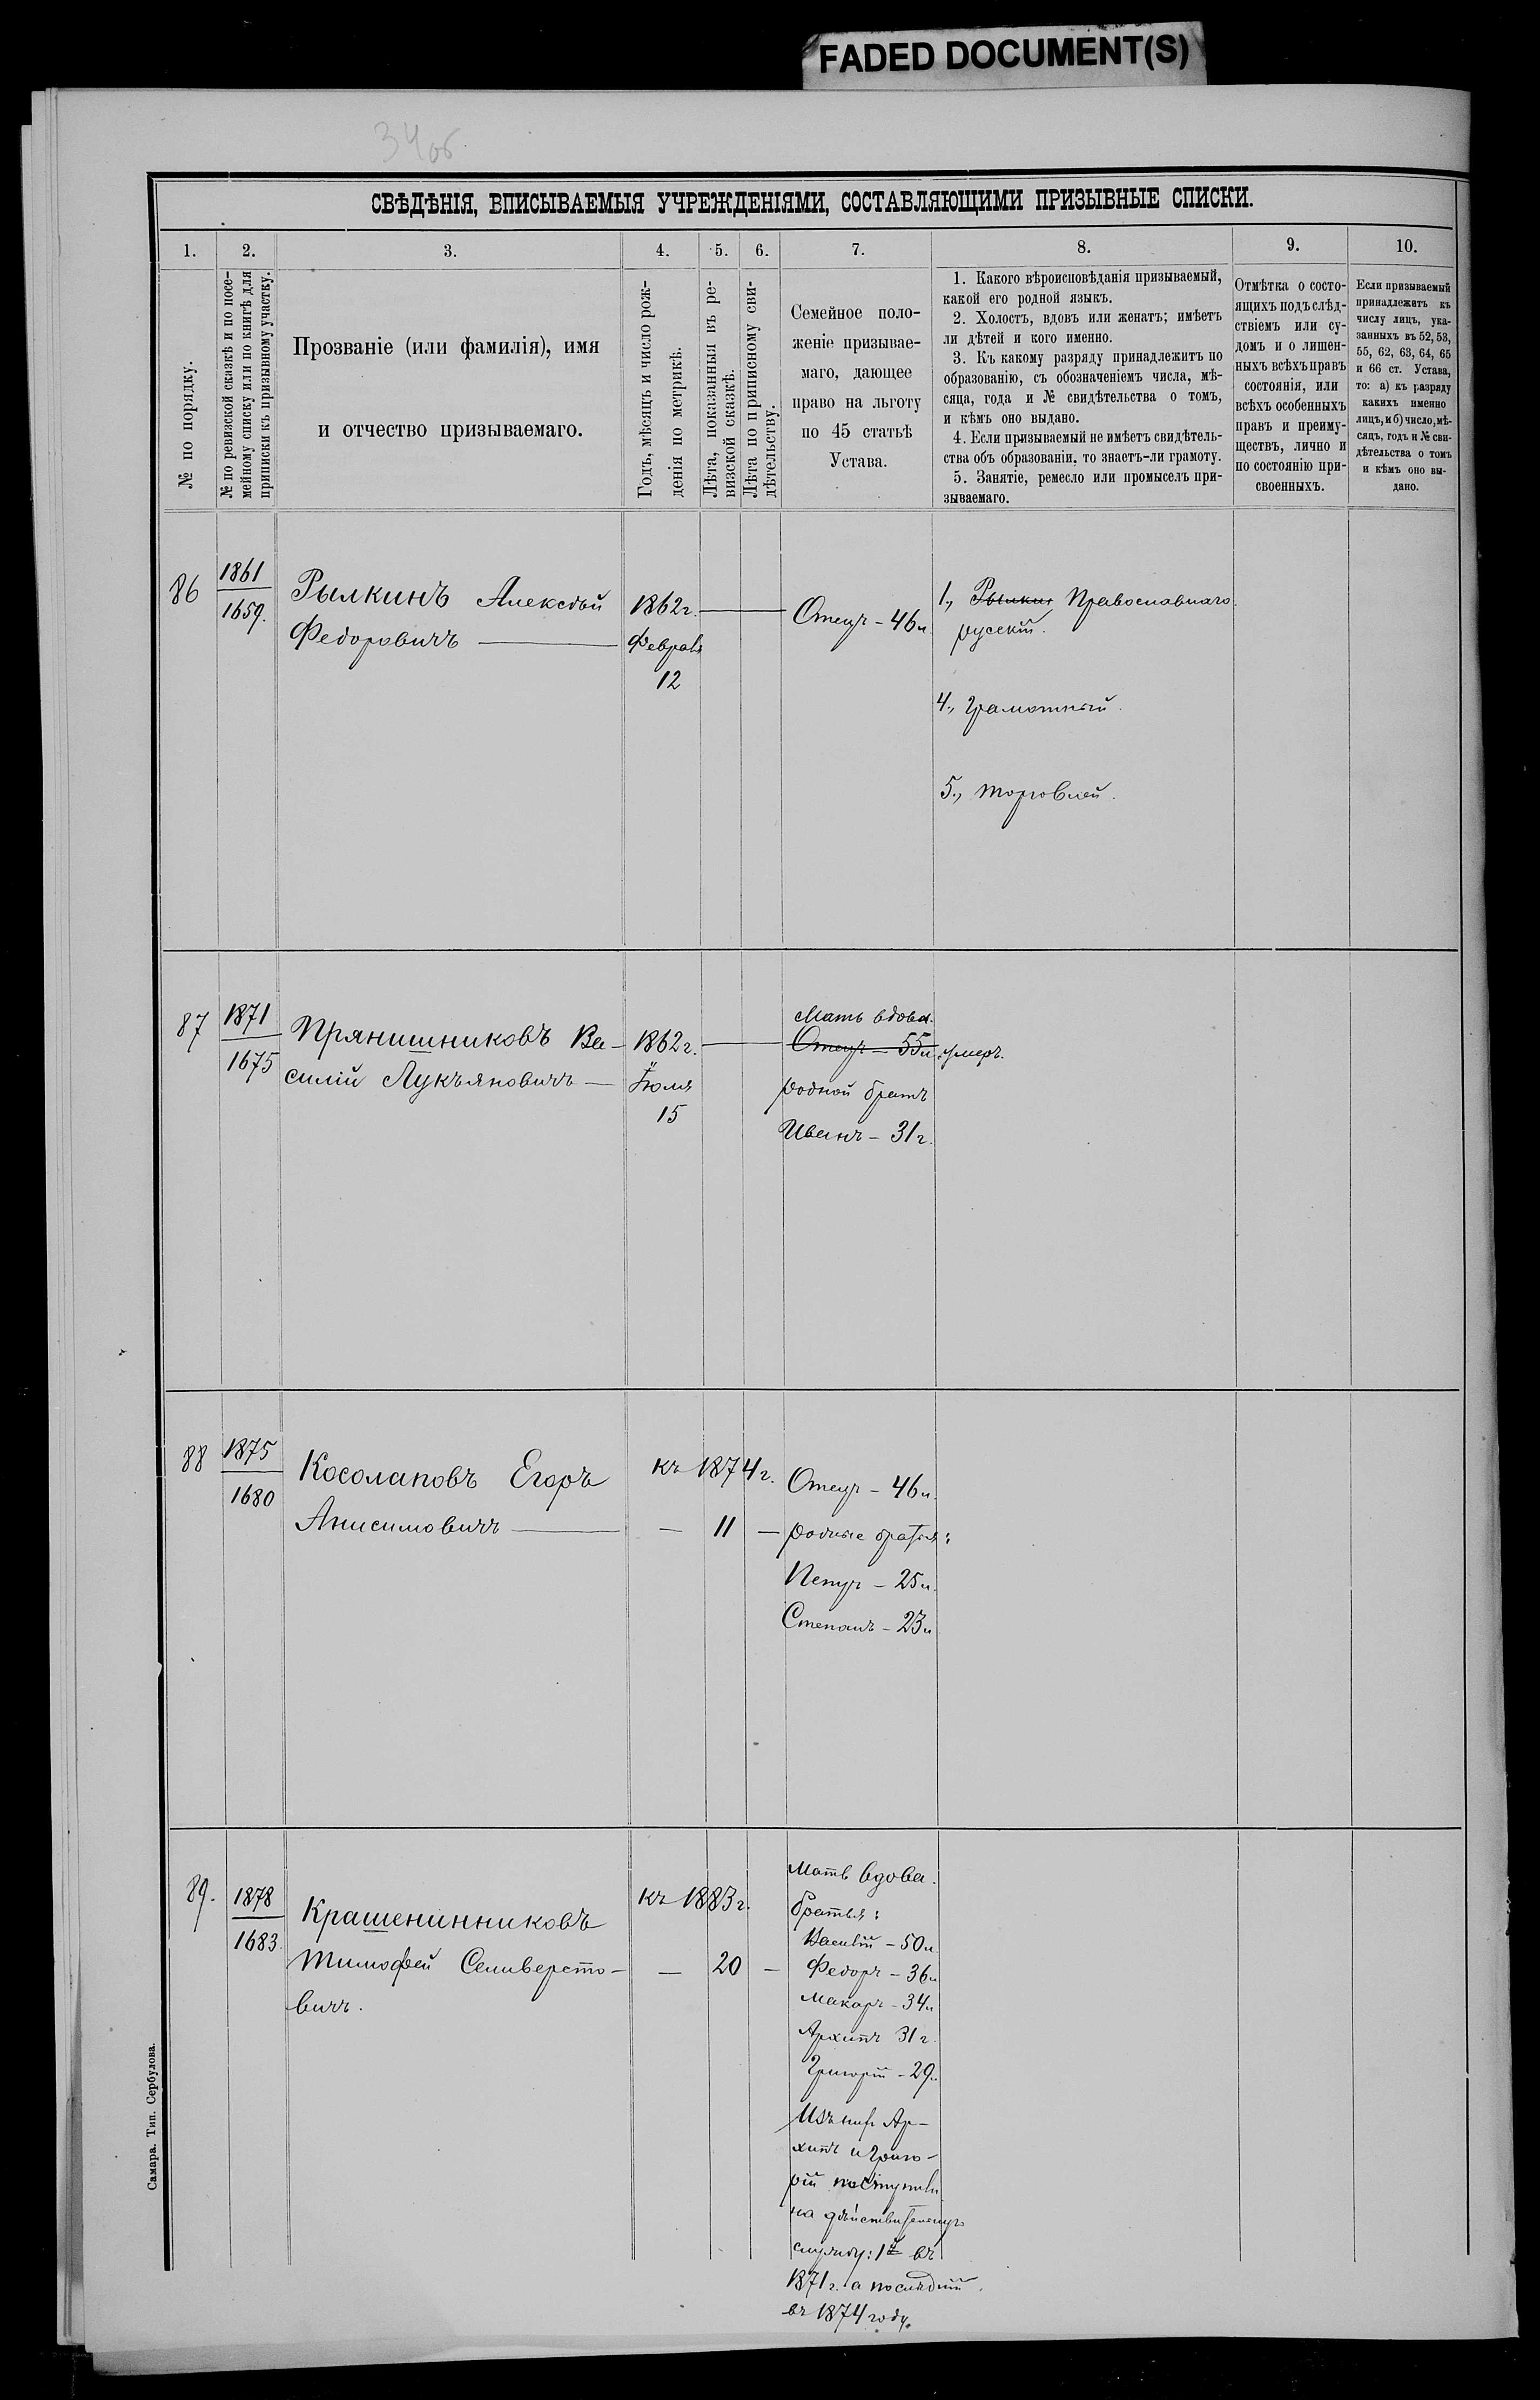 FADED DOCUMENT(S)
34 об.
СВѢДѢНІЯ, ВПИСЫВАЕМЫЯ УЧРЕЖДЕНІЯМИ, СОСТАВЛЯЮЩИМИ ПРИЗЫВНЫЕ СПИСКИ.
1.
2.
3.
4.
5.
6.
7.
8.
9.
10.
№ по порядку.
№ по ревизской сказкѣ и по посе-
мейному списку или по книгѣ для
приписки къ призывному участку.
Прозваніе (или фамилія), имя
и отчество призываемаго.
Годъ, мѣсяцъ и число рож-
денія по метрикѣ.
Лѣта, показанныя въ ре-
визской сказкѣ.
Лѣта по приписному сви-
дѣтельству.
Семейное поло-
женіе призывае-
маго, дающее
право на льготу
по 45 статьѣ
Устава.
1. Какого вѣроисповѣданія призываемый,
какой его родной языкъ.
2. Холостъ, вдовъ или женатъ; имѣетъ
ли дѣтей и кого именно.
3. Къ какому разряду принадлежитъ по
образованію, съ обозначеніемъ числа, мѣ-
сяца, года и № свидѣтельства о томъ,
и кѣмъ оно выдано.
4. Если призываемый не имѣетъ свидѣтель-
ства объ образованіи, то знаетъ-ли грамоту.
5. Занятіе, ремесло или промыселъ при-
зываемаго.
Отмѣтка о состо-
ящихъ подъ слѣд-
ствіемъ или су-
домъ и о лишен-
ныхъ всѣхъ правъ
состоянія, или
всѣхъ особенныхъ
правъ и преиму-
ществъ, лично и
по состоянію при-
своенныхъ.
Если призываемый
принадлежитъ къ
числу лицъ, ука-
занныхъ въ 52, 53,
55, 62, 63, 64, 65
и 66 ст. Устава,
то: а) къ разряду
какихъ именно
лицъ, и б) число, мѣ-
сяцъ, годъ и № сви-
дѣтельства о томъ
и кѣмъ оно вы-
дано.
86
1861
1659.
Рылкинъ Алексѣй
Федоровичъ
1862 г.
Февраля
12
Отецъ - 46 л.
1., Рылкин Православнаго
русскій.
4., Грамотный.
5., торговлей.
87
1871
1675
Прянишниковъ Ва-
силій Лукъяновичъ
1862 г.
Іюля
15
Мать вдова.
Отецъ - 55 л. умеръ.
родной братъ
Иванъ - 31 г.
88
1875
1680
Косолаповъ Егоръ
Анисимовичъ
къ 1874 г.
— 11 —
Отецъ - 46 л.
родные братья:
Петръ - 25 л.
Степанъ - 23 л
89.
1878
1683.
Крашенинниковъ
Тимофей Селиверсто-
вичъ.
къ 1883 г.
— 20 —
Мать вдова.
братья:
Василій - 50 л.
Федоръ - 36 л
Макаръ - 34 л
Архипъ 31 г.
Григорій - 29 л.
Изъ них Ар-
хипъ и Григо-
рій поступили
на дѣйствительную
службу: 1й въ
1871 г. а послѣдній
въ 1874 году.
Самара. Тип. Сербулова.